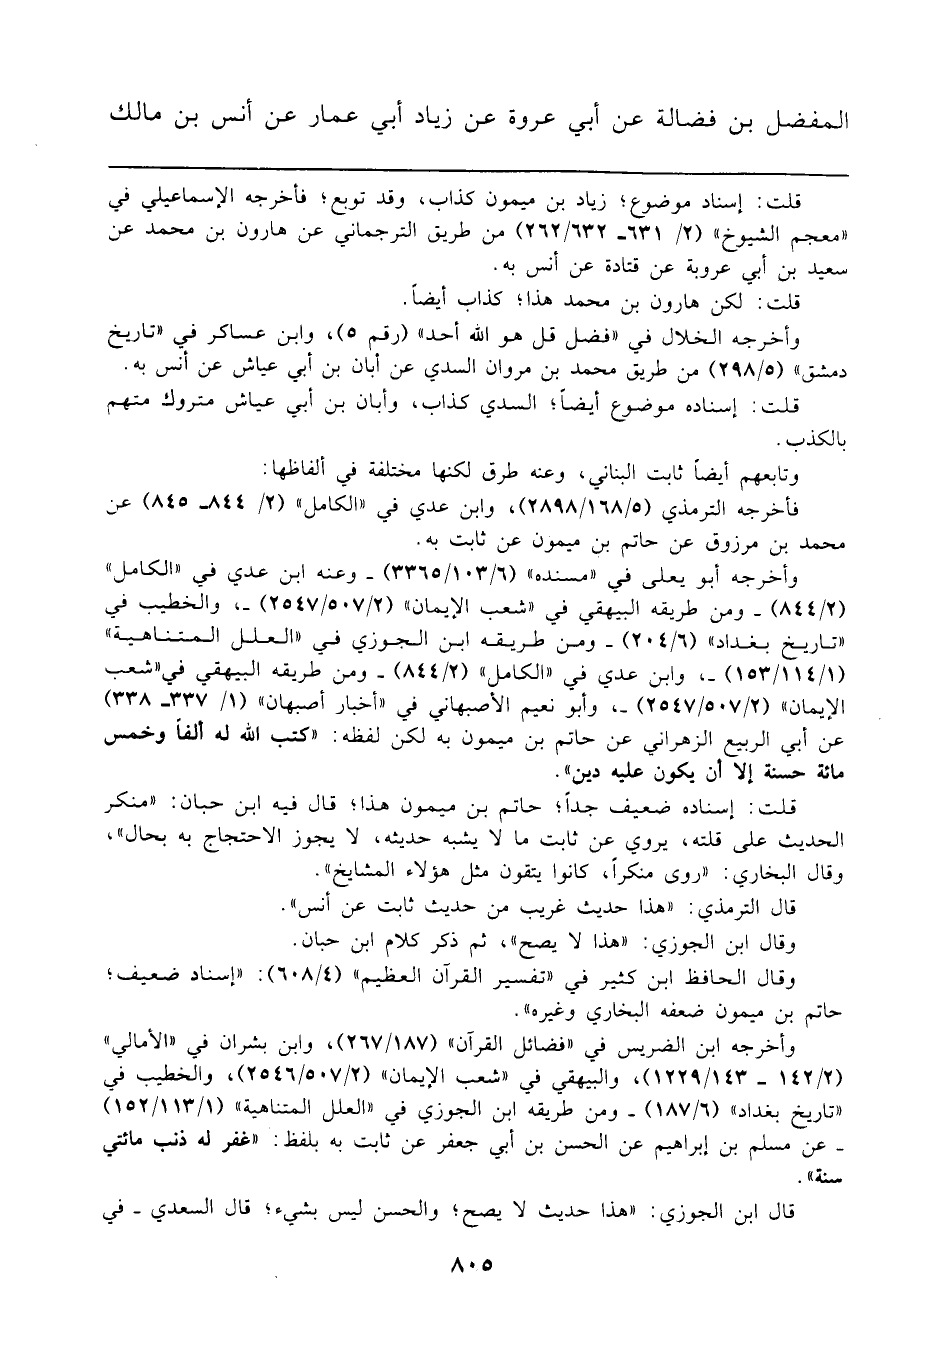 المفضل بن فضالة عن أبي عروة عن زياد أبي عمار عن أنس بن مالك
قلت: إسناد موضوع؛ زياد بن ميمون كذاب، وقد توبع؛ فأخرجه الإسماعيلي في
«معجم الشيوخ» (٢/ ٦٣١ـ ٢٦٢/٦٣٢) من طريق الترجماني عن هارون بن محمد عن
سعيد بن أبي عروبة عن قتادة عن أنس به.
قلت: لكن هارون بن محمد هذا؛ كذاب أيضاً.
وأخرجه الخلال في «فضل قل هو الله أحد» (رقم ٥)، وابن عساكر في «تاريخ
دمشق» (٢٩٨/٥) من طريق محمد بن مروان السدي عن أبان بن أبي عياش عن أنس به.
قلت: إسناده موضوع أيضاً؛ السدي كذاب، وأبان بن أبي عياش متروك متهم
بالكذب.
وتابعهم أيضاً ثابت البناني، وعنه طرق لكنها مختلفة في ألفاظها:
فأخرجه الترمذي (٢٨٩٨/١٦٨/٥)، وابن عدي في «الكامل» (٢/ ٨٤٤ـ ٨٤٥) عن
محمد بن مرزوق عن حاتم بن ميمون عن ثابت به.
وأخرجه أبو يعلى في «مسنده» (٣٣٦٥/١٠٣/٦) ـ وعنه ابن عدي في «الكامل»
(٨٤٤/٢) ـ ومن طريقه البيهقي في «شعب الإيمان» (٢٥٤٧/٥٠٧/٢) ـ، والخطيب في
«تاريخ بغداد» (٢٠٤/٦) ـ ومن طريقه ابن الجوزي في «العلل المتناهية»
(١٥٣/١١٤/١) ـ، وابن عدي في «الكامل» (٨٤٤/٢) ـ ومن طريقه البيهقي في«شعب
الإيمان» (٢٥٤٧/٥٠٧/٢) ـ، وأبو نعيم الأصبهاني في «أخبار أصبهان» (١/ ٣٣٧ـ ٣٣٨)
عن أبي الربيع الزهراني عن حاتم بن ميمون به لكن لفظه: «كتب الله له ألفاً وخمس
مائة حسنة إلا أن يكون عليه دين».
قلت: إسناده ضعيف جداً؛ حاتم بن ميمون هذا؛ قال فيه ابن حبان: «منكر
الحديث على قلته، يروي عن ثابت ما لا يشبه حديثه، لا يجوز الاحتجاج به بحال»،
وقال البخاري: «روى منكراً، كانوا يتقون مثل هؤلاء المشايخ».
قال الترمذي: «هذا حديث غريب من حديث ثابت عن أنس».
وقال ابن الجوزي: «هذا لا يصح»، ثم ذكر كلام ابن حبان.
وقال الحافظ ابن كثير في «تفسير القرآن العظيم» (٦٠٨/٤): «إسناد ضعيف؛
حاتم بن ميمون ضعفه البخاري وغيره».
وأخرجه ابن الضريس في «فضائل القرآن» (٢٦٧/١٨٧)، وابن بشران في «الأمالي»
(١٤٢/٢ ـ ١٢٢٩/١٤٣)، والبيهقي في «شعب الإيمان» (٢٥٤٦/٥٠٧/٢)، والخطيب في
«تاريخ بغداد» (١٨٧/٦) ـ ومن طريقه ابن الجوزي في «العلل المتناهية» (١٥٢/١١٣/١)
ـ عن مسلم بن إبراهيم عن الحسن بن أبي جعفر عن ثابت به بلفظ: «غفر له ذنب مائتي
سنة».
قال ابن الجوزي: «هذا حديث لا يصح؛ والحسن ليس بشيء؛ قال السعدي ـ في
٨٠٥